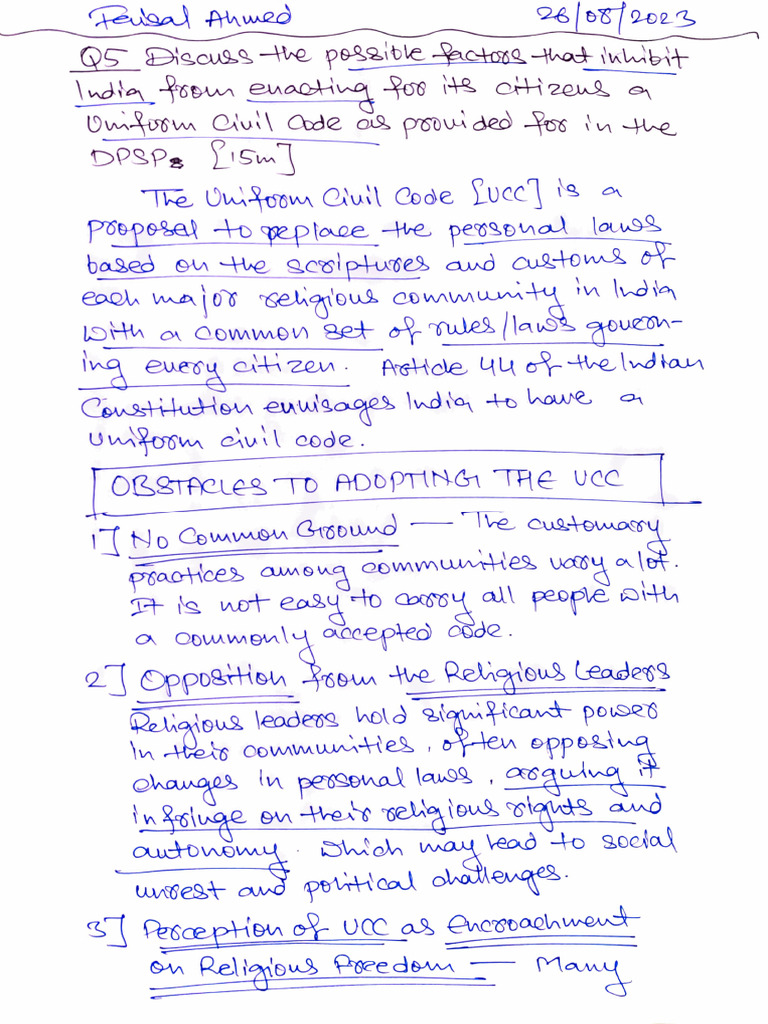 Feisal Ahmed 26/08/2023
Q5 Discuss the possible factors that inhibit
India from enacting for its citizens a
Uniform Civil Code as provided for in the
DPSPs [15m]
The Uniform Civil Code [UCC] is a
proposal to replace the personal laws
based on the scriptures and customs of
each major religious community in India
with a common set of rules/laws govern-
ing every citizen. Article 44 of the Indian
Constitution envisages India to have a
uniform civil code.
OBSTACLES TO ADOPTING THE UCC
1] No Common Ground — The customary
practices among communities vary a lot.
It is not easy to carry all people with
a commonly accepted code.
2] Opposition from the Religious Leaders
Religious leaders hold significant power
in their communities, often opposing
changes in personal laws, arguing it
infringe on their religious rights and
autonomy. Which may lead to social
unrest and political challenges.
3] Perception of UCC as Encroachment
on Religious Freedom — Many